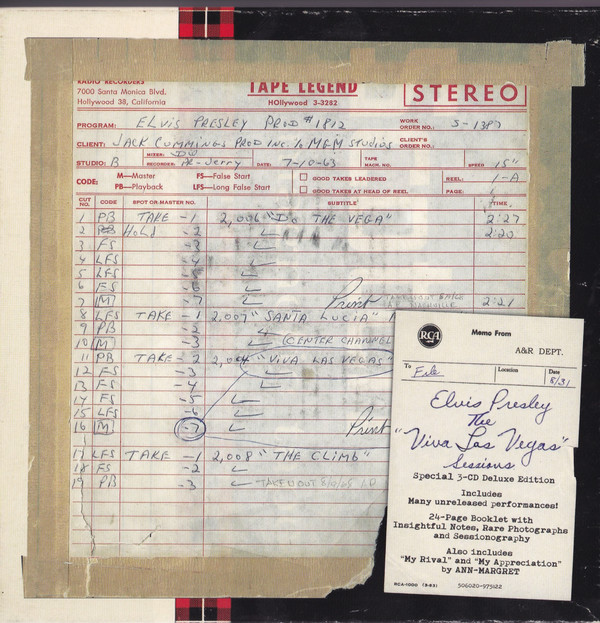 RADIO RECORDERS
7000 Santa Monica Blvd.
Hollywood 38, California
TAPE LEGEND
HOllywood 3-3282
STEREO
PROGRAM: ELVIS PRESLEY PROD #1912
WORK ORDER NO.: 5-1387
CLIENT: JACK CUMMINGS PROD INC. % MGM STUDIOS
CLIENT'S ORDER NO.:
STUDIO: B
MIXER: DW
RECORDER: Jerry
DATE: 7-10-63
TAPE MACH. NO.
SPEED 15"
CODE:
M—Master FS—False Start
PB—Playback LFS—Long False Start
GOOD TAKES LEADERED
GOOD TAKES AT HEAD OF REEL
REEL: 1-A
PAGE:
CUT NO. CODE SPOT OR MASTER NO. SUBTITLE TIME
1 PB TAKE -1 2,006 "THE VEGA" 2:27
2 PB HOLD -2 2:20
3 FS -3
4 LFS -4
5 LFS -5
6 FS -6
7 M -7 Print 2:21
8 LFS TAKE -1 2,007 "SANTA LUCIA"
9 PB -2
10 M -3 (CENTER CHANNEL
11 PB TAKE -2 2,004 "VIVA LAS VEGAS"
12 FS -3
13 FS -4
14 FS -5
15 LFS -6
16 M -7 Print
17 LFS TAKE -1 2,008 "THE CLIMB"
18 FS -2
19 PB -3 TAKEN OUT
RCA
Memo From
A&R DEPT.
To File
Location
Date 8/31
Elvis Presley
The
"Viva Las Vegas"
Sessions
Special 3-CD Deluxe Edition
Includes
Many unreleased performances!
24-Page Booklet with
Insightful Notes, Rare Photographs
and Sessionography
Also includes
"My Rival" and "My Appreciation"
by ANN-MARGRET
RCA-1000 (8-63) 506020-975122